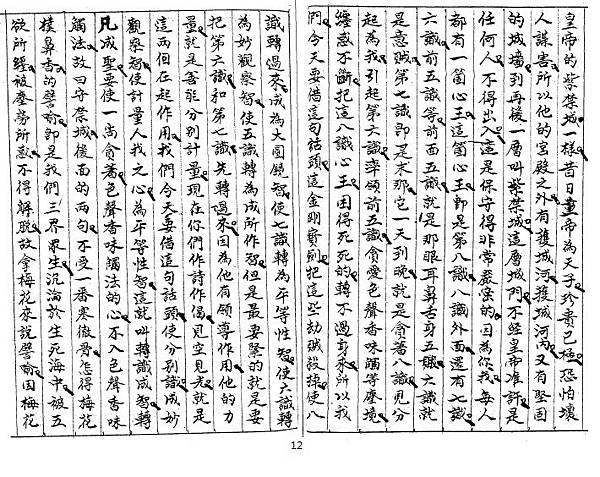 皇帝的紫禁城一樣昔日皇帝為天子珍貴已極恐怕壞
人謀害所以他的宮殿之外有護城河護城河內又有堅固
的城墻到再後一層叫紫禁城這層城門不經皇帝准許是
任何人不得出入這是保守得非常嚴密的因為你我每人
都有一箇心王這箇心王即是第八識八識外面還有七識
六識前五識當前面五識就是那眼耳鼻舌身五識六識就
是意識第七識即是末那它一天到晚就是貪著八識見分
起為我引起第六識率領前五識貪愛色聲香味觸等塵境
纏惑不斷把這八識心王困得死死的轉不過身來所以我
們今天要借這句話頭這金剛寶劍把這些劫賊殺掉使八
識轉過來成為大圓鏡智使七識轉為平等性智使六識轉
為妙觀察智使五識轉為成所作智但是最要緊的就是要
把第六識和第七識先轉過來因為他有領導作用他的力
量就是善能分別計量現在你們作詩作偈見空見光就是
這兩個在起作用我們今天要借這句話頭使分別識成妙
觀察智使計量人我之心為平等性智這就叫轉識成智轉
凡成聖要使一向貪著色聲香味觸法的心不入色聲香味
觸法故曰守禁城後面的兩句不受一番寒徹骨怎得梅花
樸鼻香的譬喻即是我們三界眾生沉淪於生死海中被五
欲所纏被塵勞所惑不得解脫故拿梅花來說譬喻因梅花
12